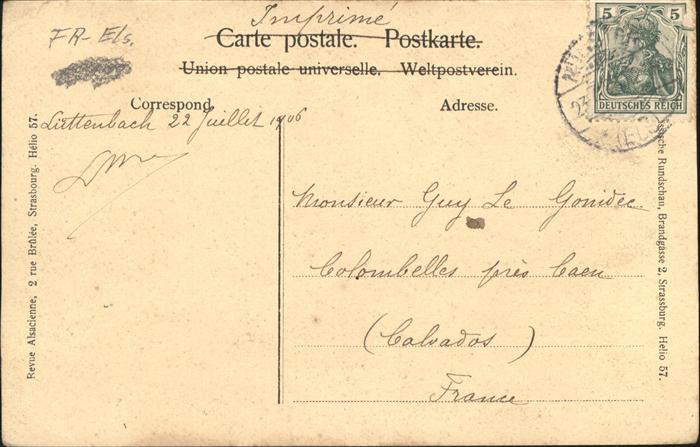 Imprimé
FR-Els.
Carte postale. Postkarte.
Union postale universelle. Weltpostverein.
Correspond.
Adresse.
5 5
DEUTSCHES REICH
Luttenbach 22 Juillet 1906
Monsieur Guy Le Gonidec
Colombelles près Caen
(Calvados)
France
Revue Alsacienne, 2 rue Brûlée, Strasbourg. Hélio 57.
Rundschau, Brandgasse 2, Strassburg. Helio 57.